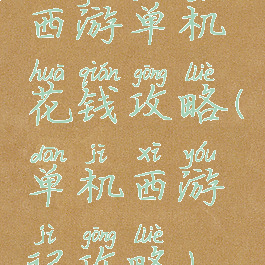 西游单机
huā qián gōng lüè
花钱攻略(
dān jī xī yóu
单机西游
jì gōng lüè
记攻略)